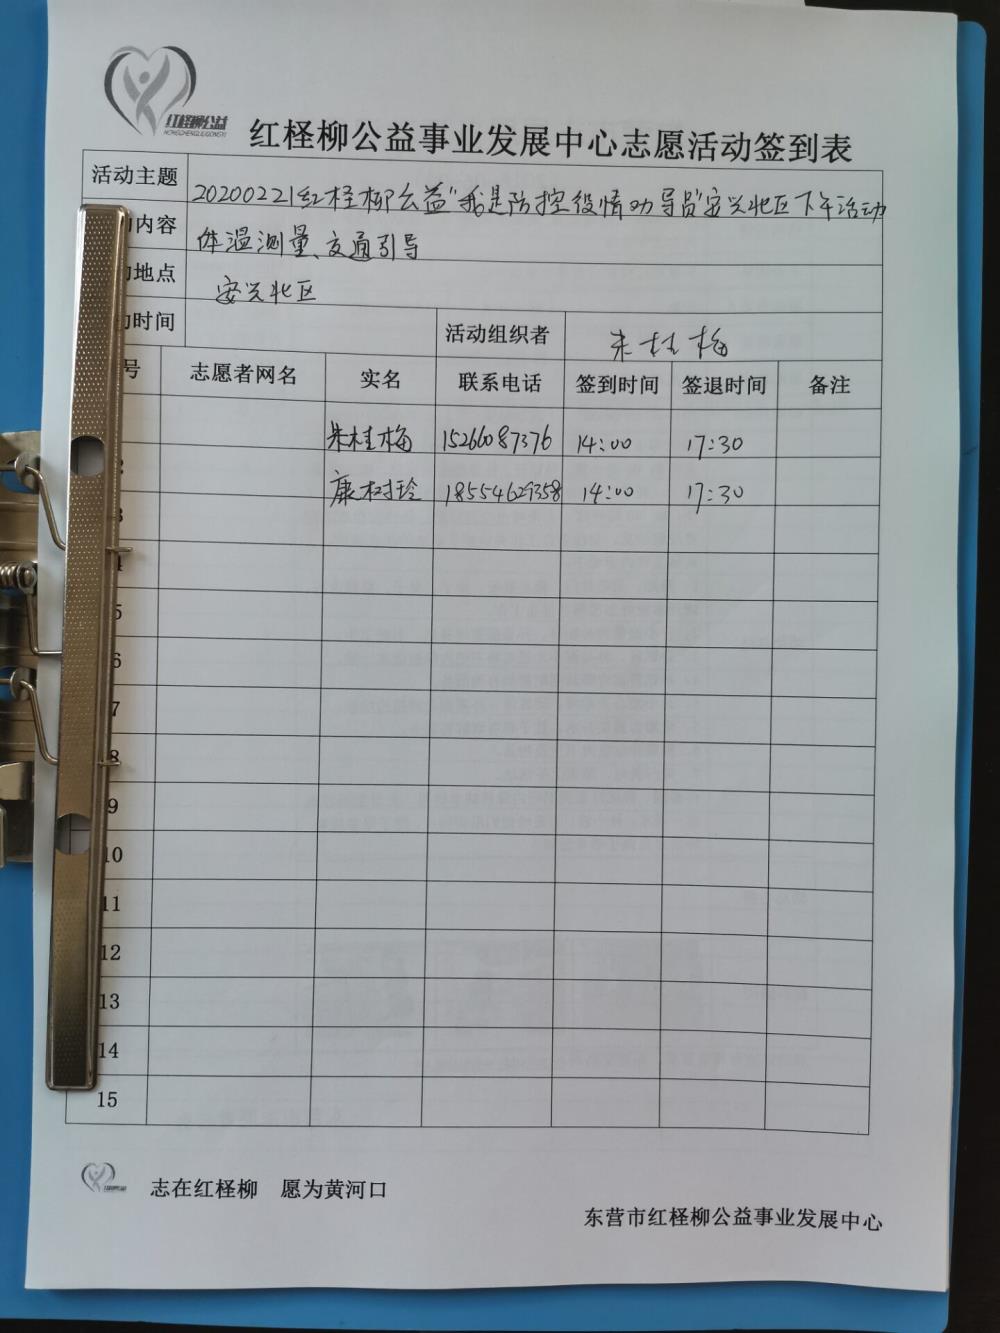 红柽柳公益
HONGCHENGLIUGONGYI
红柽柳公益事业发展中心志愿活动签到表
活动主题 20200221红柽柳公益"我是防控疫情劝导员"安兴北区下午活动
内容 体温测量、交通引导
地点 安兴北区
时间 活动组织者 朱桂梅
号 志愿者网名 实名 联系电话 签到时间 签退时间 备注
朱桂梅 15266087376 14:00 17:30
2 康树玲 18554629358 14:00 17:30
3
4
5
6
7
8
9
10
11
12
13
14
15
志在红柽柳 愿为黄河口
东营市红柽柳公益事业发展中心